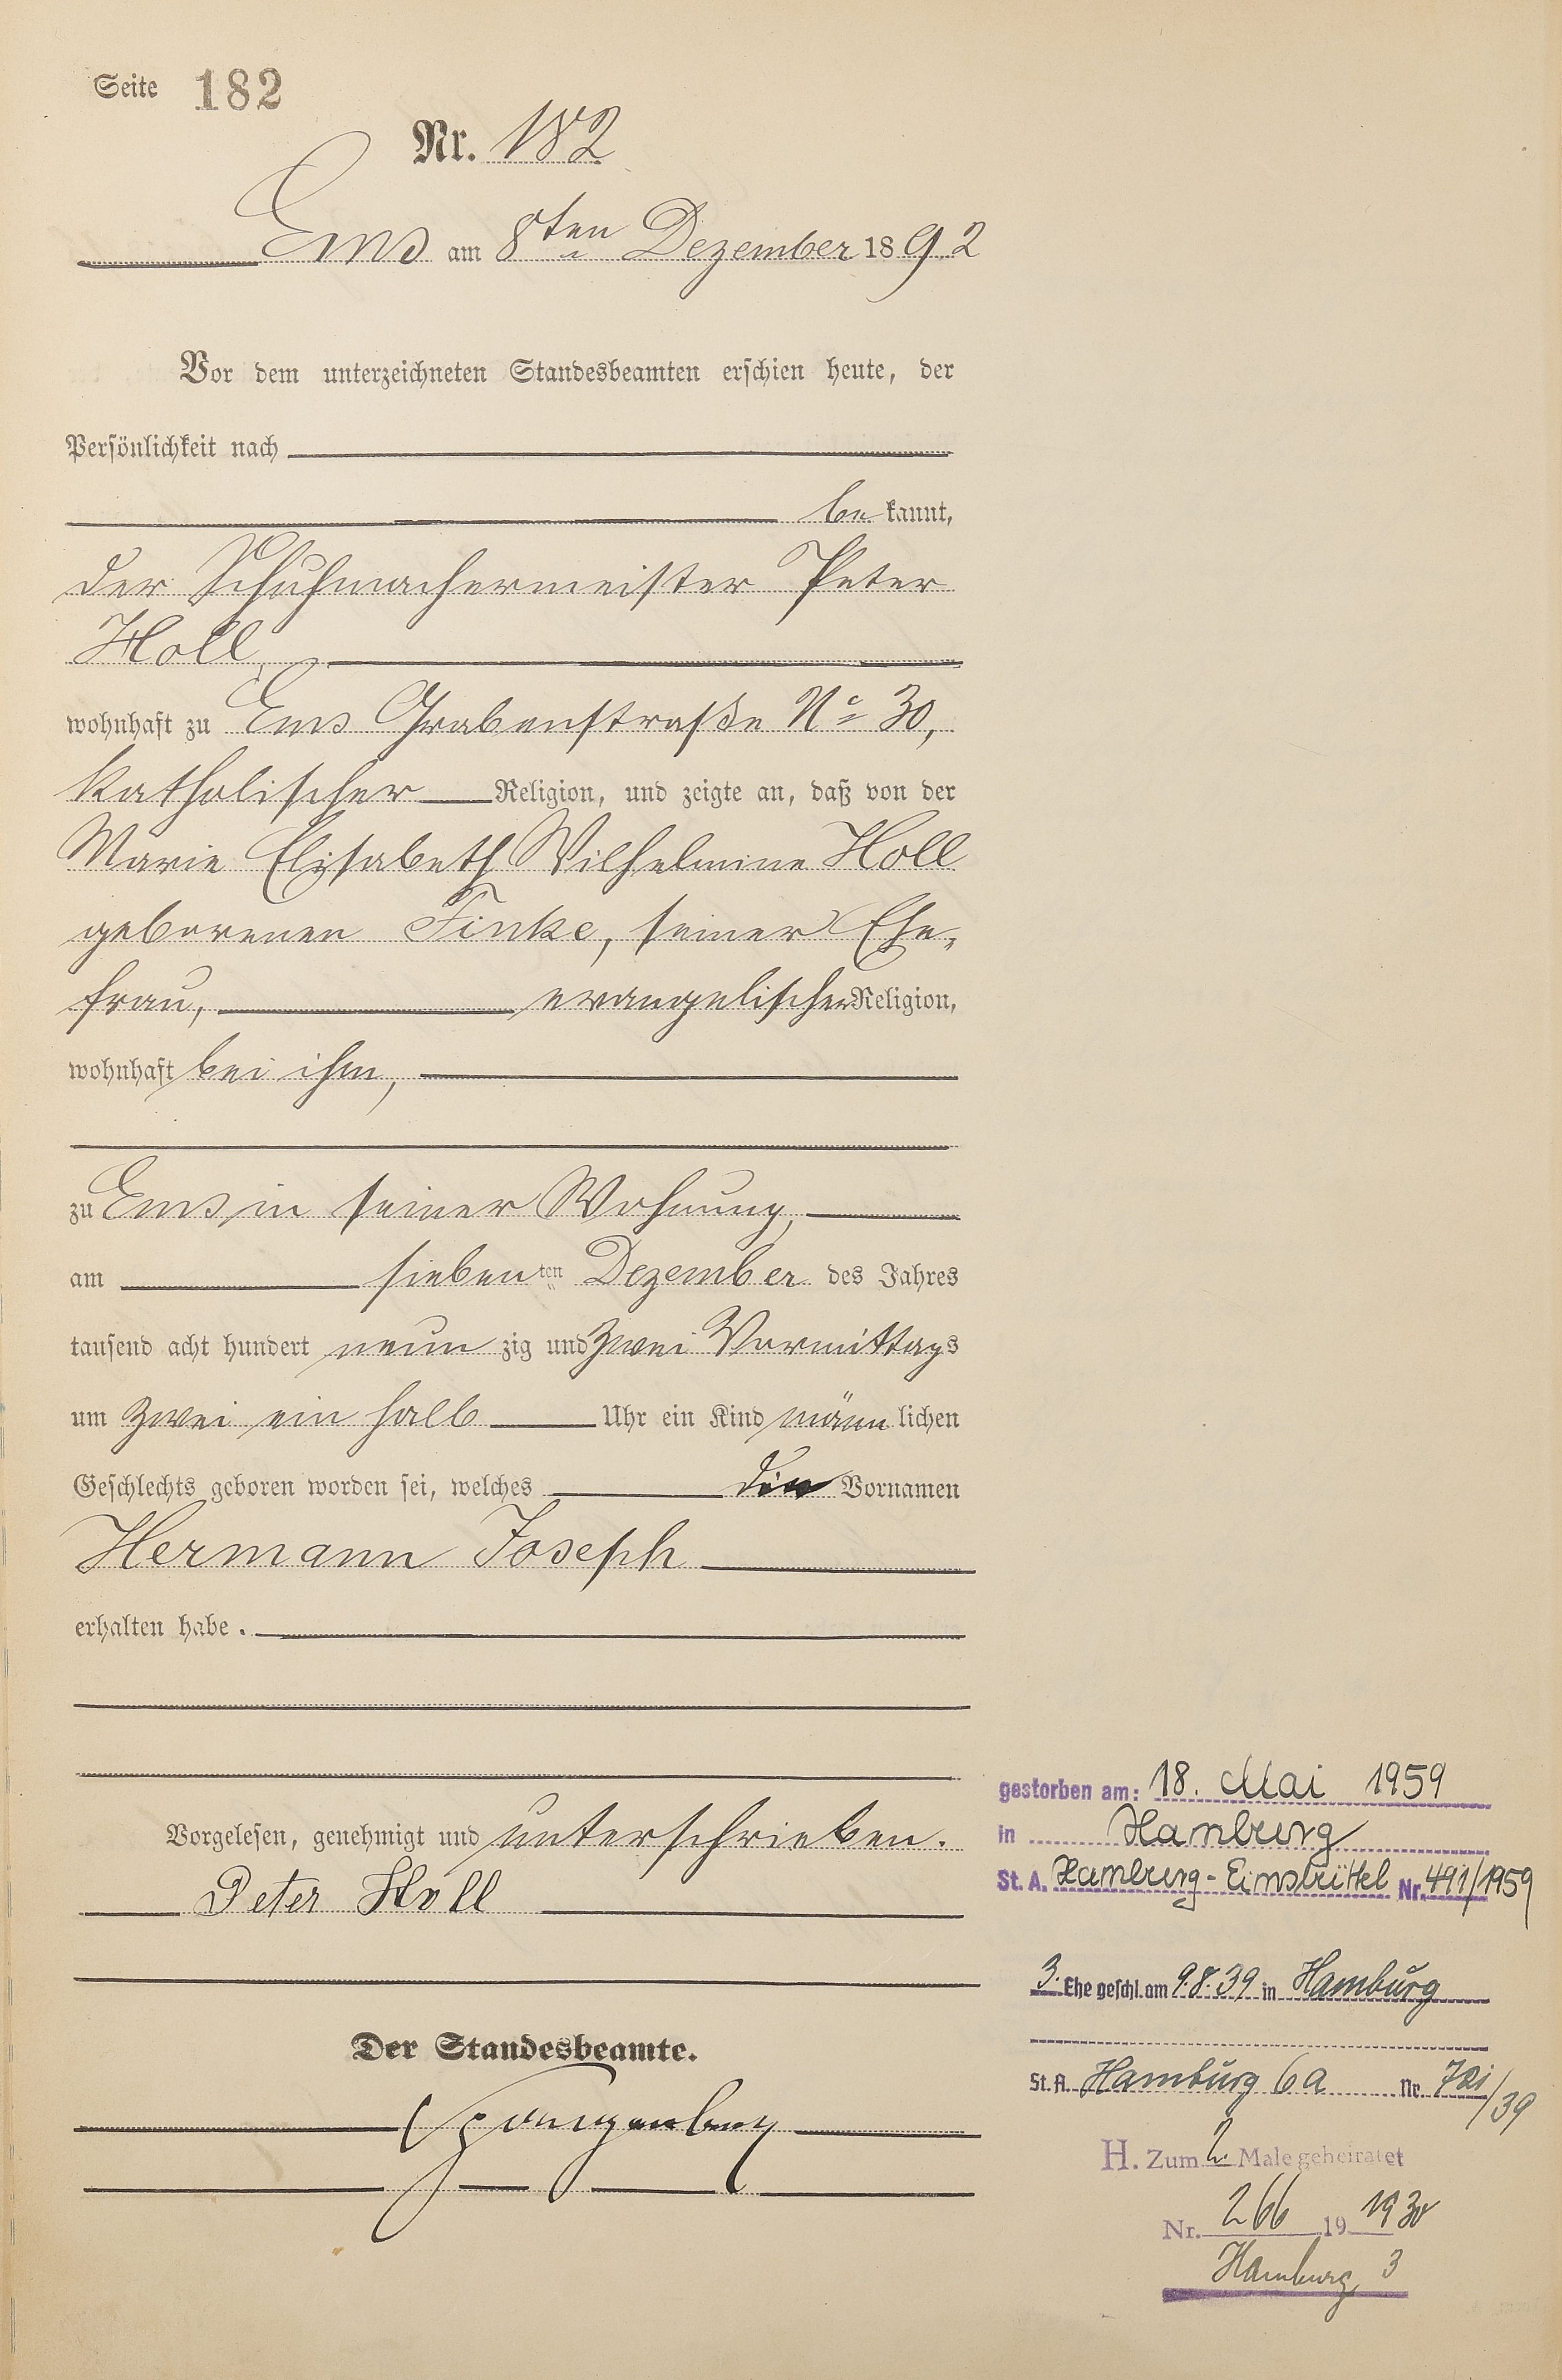 Seite 182
Nr. 182
Ems am 8ten Dezember 1892
Vor dem unterzeichneten Standesbeamten erschien heute, der
Persönlichkeit nach
bekannt,
der Schuhmachermeister Peter
Holl,
wohnhaft zu Ems Grabenstraße No 30,
katholischer Religion, und zeigte an, daß von der
Marie Elisabeth Wilhelmine Holl
geborenen Finke, seiner Ehe-
frau, evangelischer Religion,
wohnhaft bei ihm,
zu Ems in seiner Wohnung,
am siebenten Dezember des Jahres
tausend acht hundert neunzig und zwei Vormittags
um zwei ein halb Uhr ein Kind männlichen
Geschlechts geboren worden sei, welches die Vornamen
Hermann Joseph
erhalten habe.
Vorgelesen, genehmigt und unterschrieben.
Peter Holl
Der Standesbeamte.
Spangenberg
gestorben am: 18. Mai 1959
in Hamburg
St. A. Hamburg-Eimsbüttel Nr. 491/1959
3. Ehe geschl. am 9.8.39 in Hamburg
St. A. Hamburg 6a Nr. 721/39
H. Zum 2. Male geheiratet
Nr. 266 19 1930
Hamburg 3